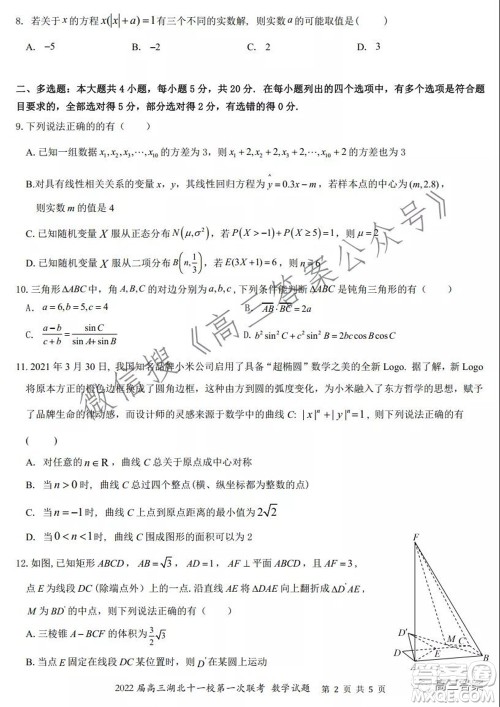 8. 若关于 x 的方程 x(|x|+a)=1 有三个不同的实数解, 则实数 a 的可能取值是( )
A. -5 B. -2 C. 2 D. 3
二、多选题：本大题共 4 小题，每小题 5 分，共 20 分．在每小题列出的四个选项中，有多个选项是符合题
目要求的，全部选对得 5 分，部分选对得 2 分，有选错的得 0 分．
9.下列说法正确的的有（ ）
A.已知一组数据 x₁,x₂,x₃,⋯,x₁₀ 的方差为 3，则 x₁+2,x₂+2,x₃+2,⋯,x₁₀+2 的方差也为 3
B.对具有线性相关关系的变量 x，y，其线性回归方程为 ŷ=0.3x-m，若样本点的中心为 (m,2.8)，
则实数 m 的值是 4
C. 已知随机变量 X 服从正态分布 N(μ,σ²)，若 P(X>-1)+P(X≥5)=1，则 μ=2
D. 已知随机变量 X 服从二项分布 B(n,1/3)，若 E(3X+1)=6，则 n=6
10. 三角形 ΔABC 中，角 A,B,C 的对边分别为 a,b,c，下列条件能判断 ΔABC 是钝角三角形的有（ ）
A. a=6,b=5,c=4 B. AB·BC=2a
C. (a-b)/(c+b)=sinC/(sinA+sinB) D. b²sin²C+c²sin²B=2bc cosB cosC
11. 2021 年 3 月 30 日，我国知名品牌小米公司启用了具备“超椭圆”数学之美的全新 Logo. 据了解，新 Logo
将原本方正的橙色边框换成了圆角边框，这种由方到圆的弧度变化，为小米融入了东方哲学的思想，赋予
了品牌生命的律动，而设计师的灵感来源于数学中的曲线 C: |x|ⁿ+|y|ⁿ=1，则下列说法正确的有
( )
A. 对任意的 n∈R，曲线 C 总关于原点成中心对称
B. 当 n>0 时，曲线 C 总过四个整点(横、纵坐标都为整数的点)
C. 当 0<n<1 时，曲线 C 上点到原点距离的最小值为 2√2
D. 当 0<n<1 时，曲线 C 围成图形的面积可以为 2
12. 如图, 已知矩形 ABCD，AB=√3，AD=1，AF⊥平面 ABCD，且 AF=3，
点 E 为线段 DC (除端点外) 上的一点. 沿直线 AE 将 ΔDAE 向上翻折成 ΔD'AE，
M 为 BD' 的中点，则下列说法正确的有( )
A. 三棱锥 A-BCF 的体积为 3/2 √3
F
D'
M
D
E
C
A
B
2022 届高三湖北十一校第一次联考 数学试题 第 2 页 共 5 页
微信搜《高三答案公众号》
高三答案